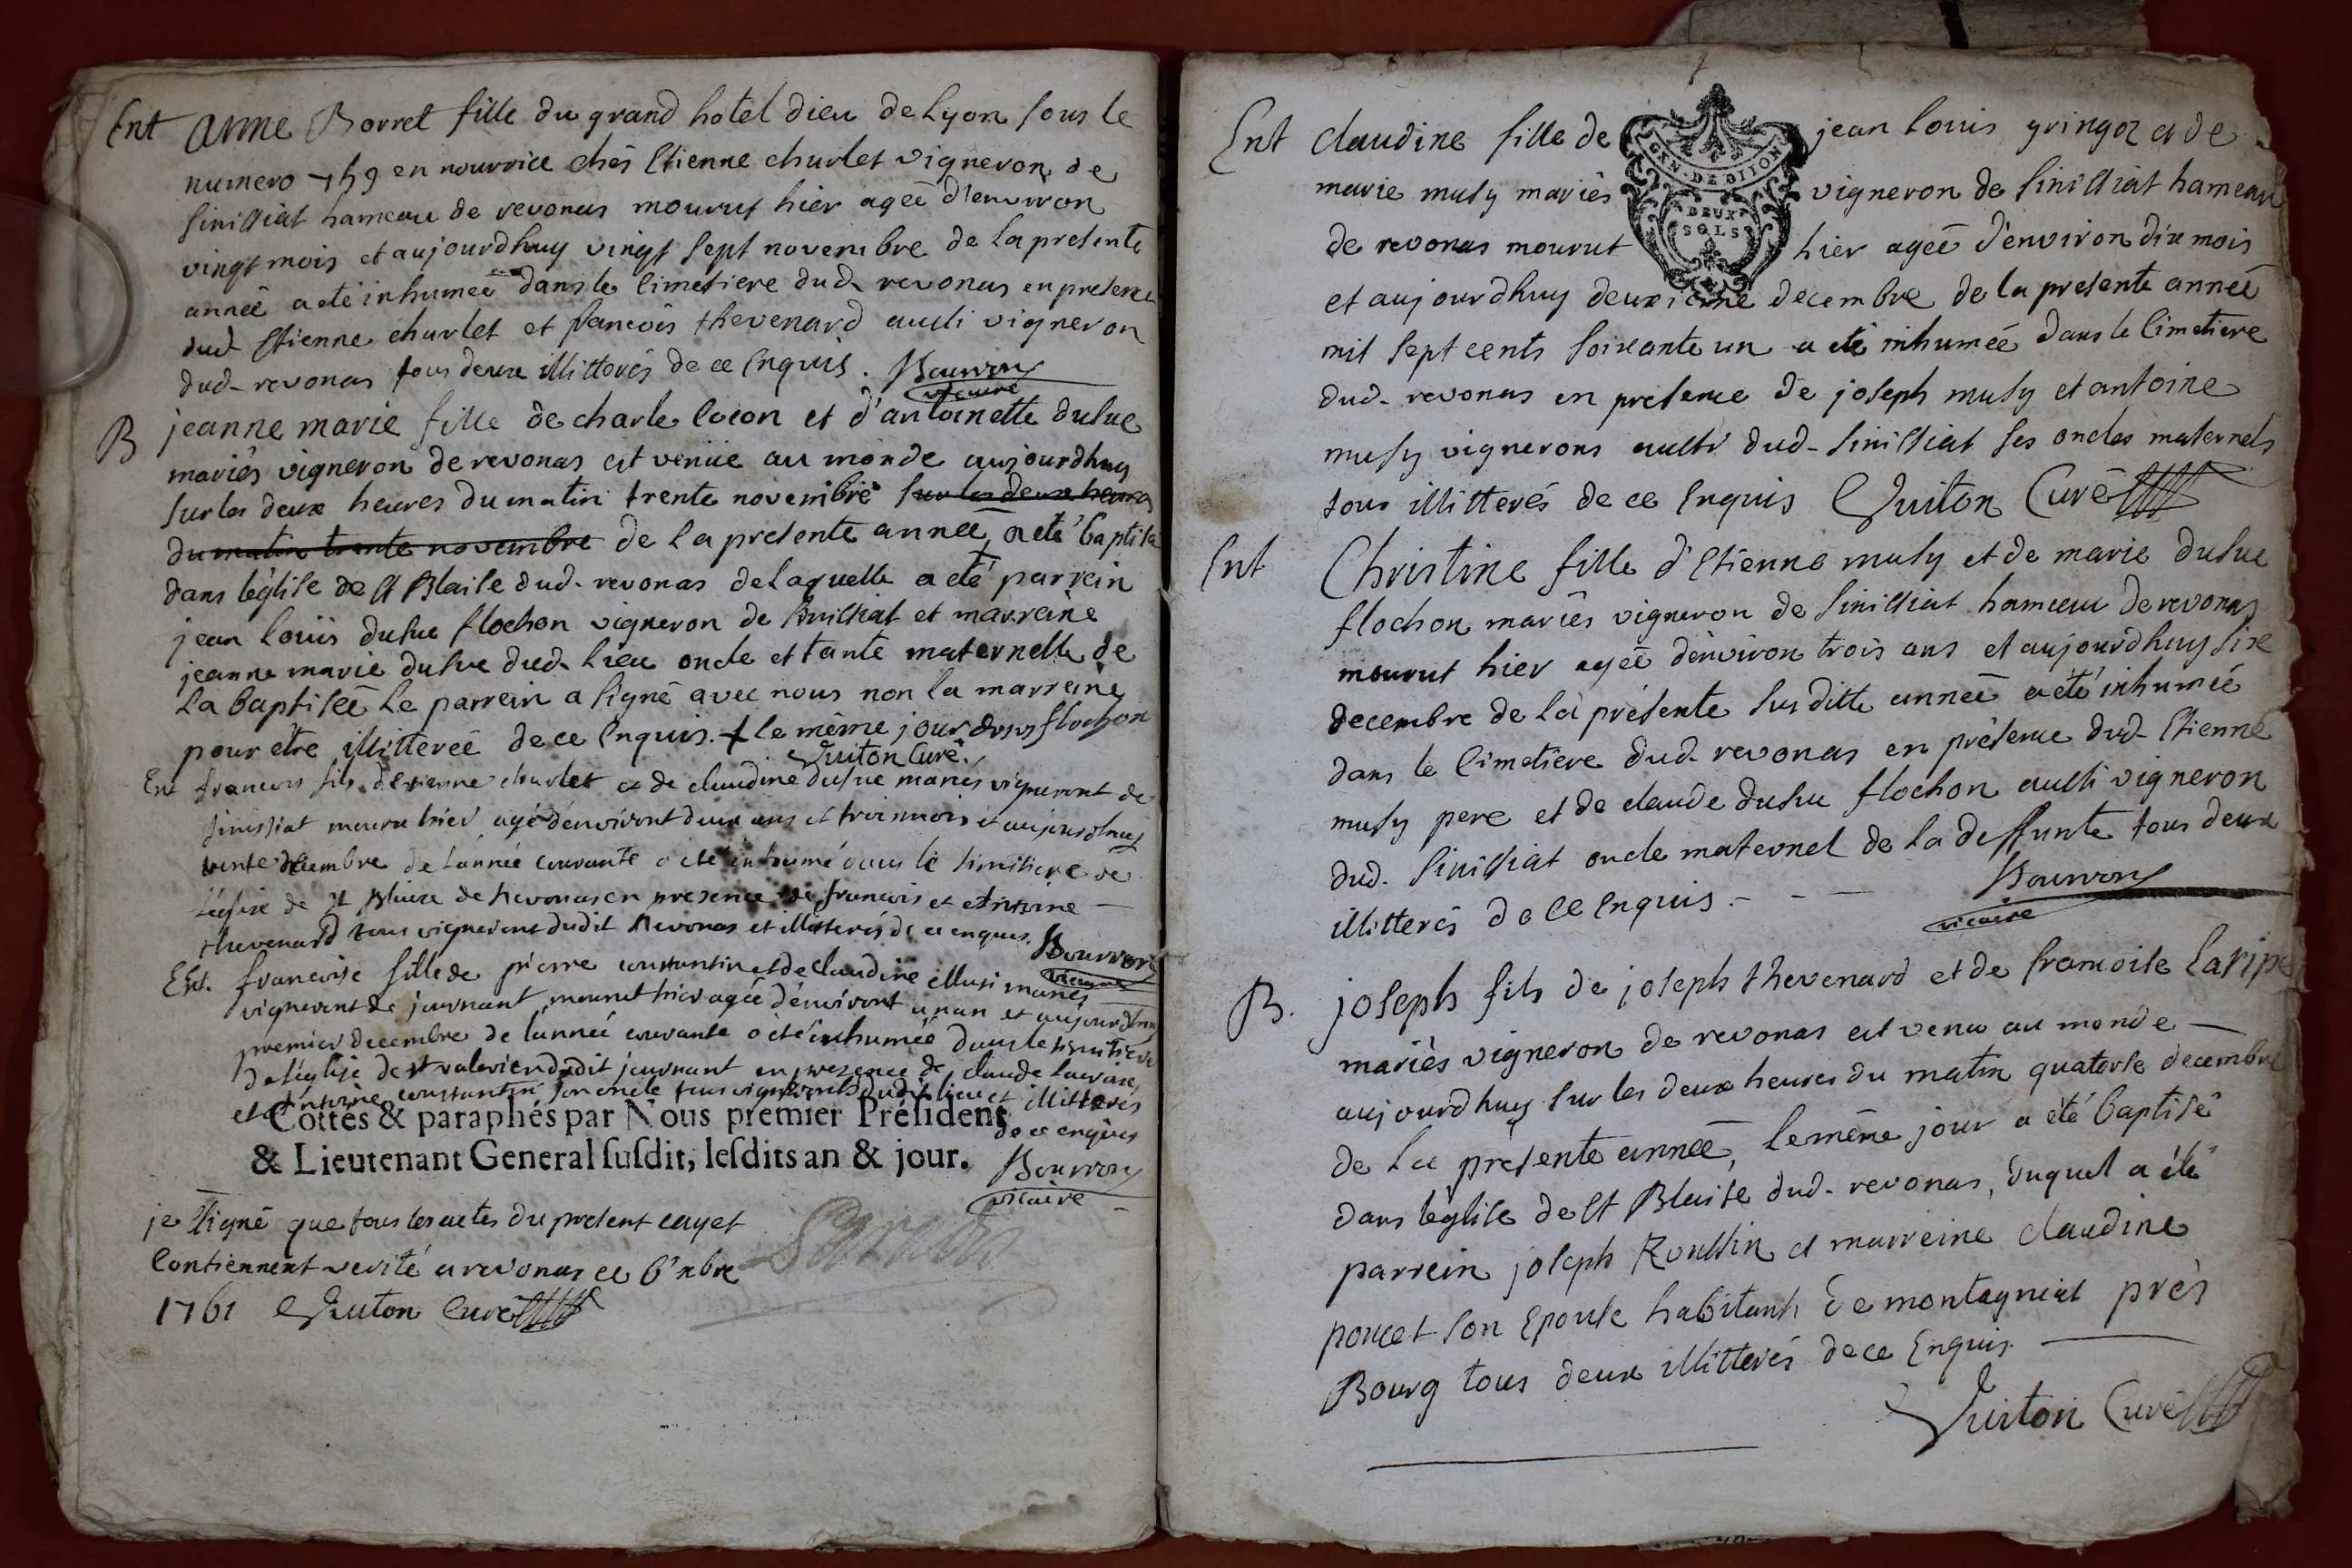 Ent Anne Borret fille du grand hotel dieu de Lyon sous le
numero 759 en nourrice chés Etienne churlet vigneron de
sinissiat hameau de revonas mourut hier agée d'environ
vingt mois et aujourdhuy vingt sept novembre de la presente
année a eté inhumée dans le cimetiere dud. revonas en presence
dud. Etienne churlet et francois thevenard aussi vigneron
dud. revonas tous deux illitterés de ce Enquis. Bouvron
vicaire
B jeanne marie fille de charle locon et d'antoinette dusue
mariés vigneron de revonas est venüe au monde aujourdhuy
sur les deux heures du matin trente novembre sur les deux heures
du matin trente novembre de la presente année, a eté baptisé
dans léglise de st Blaise dud. revonas de laquelle a eté parrein
jean louis dusue flochon vigneron de sinissiat et marreine
jeanne marie dusue dud. lieu oncle et tante maternelle de
la baptisée le parrein a signé avec nous non la marreine
pour étre illitterée de ce Enquis. + le même jour dusus flochon
Vuiton Curé.
Ent francois fils detienne churlet et de claudine dusue mariés vigneront de
sinissiat mouru hier agé dénviront deux ans et trois mois et aujourdhuy
trente decembre de lannée courante a eté inhumé dans le simitiere de
léglise de st Blaise de Revonas en presence de francois et Antoine
thevenard tous vigneront dudit Revonas et illitterés de ce enquis. Bouvron
vicaire
Ent. francoise fille de pierre constantin et de claudine Musi mariés
vigneront de journant mourut hier agée dénviront un an et aujourdhuy
premier decembre de lannée courante a eté inhumée dans le simitiere
de léglise de st valerien dudit journant en presence de claude
et Antoine constantin son oncle tous vigneronts dudit lieu et illitterés
de ce enquis
Cottés & paraphés par Nous premier Président
& Lieutenant General susdit, lesdits an & jour.
Bouvron
vicaire
je signé que tous les actes du present cayet
contiennent verité a revonas ce 6 xbre
1761 Vuiton Curé
Ent claudine fille de jean louis gringoz et de
GEN. DE DIJON
DEUX
SOLS
marie musy mariés vigneron de sinissiat hameau
de revonas mourut hier agée d'environ dix mois
et aujourdhuy deuxieme decembre de la presente année
mil sept cents soixante un a eté inhumée dans le cimetiere
dud. revonas en presence de joseph musy et antoine
musy vignerons aussi dud. sinissiat ses oncles maternels
tous illitterés de ce Enquis Vuiton Curé
Ent Christine fille d'Etienne musy et de marie dusue
flochon mariés vigneron de sinissiat hameau de revonas
mourut hier agée d'environ trois ans et aujourdhuy six
decembre de la présente susditte année a eté inhumée
dans le cimetiere dud. revonas en présence dud. Etienne
musy pere et de claude dusue flochon aussi vigneron
dud. sinissiat oncle maternel de la deffunte tous deux
illitterés de ce Enquis. Bouvron
vicaire
B. joseph fils de joseph thevenard et de francoise laripe
mariés vigneron de revonas est venu au monde
aujourdhuy sur les deux heures du matin quatorse decembre
de la presente année, le même jour a été baptisé
dans léglise de st Blaise dud. revonas, duquel a été
parrein joseph Roussin et marreine claudine
poncet son Epouse habitants de montagniat près
Bourg tous deux illitterés de ce Enquis.
Vuiton Curé